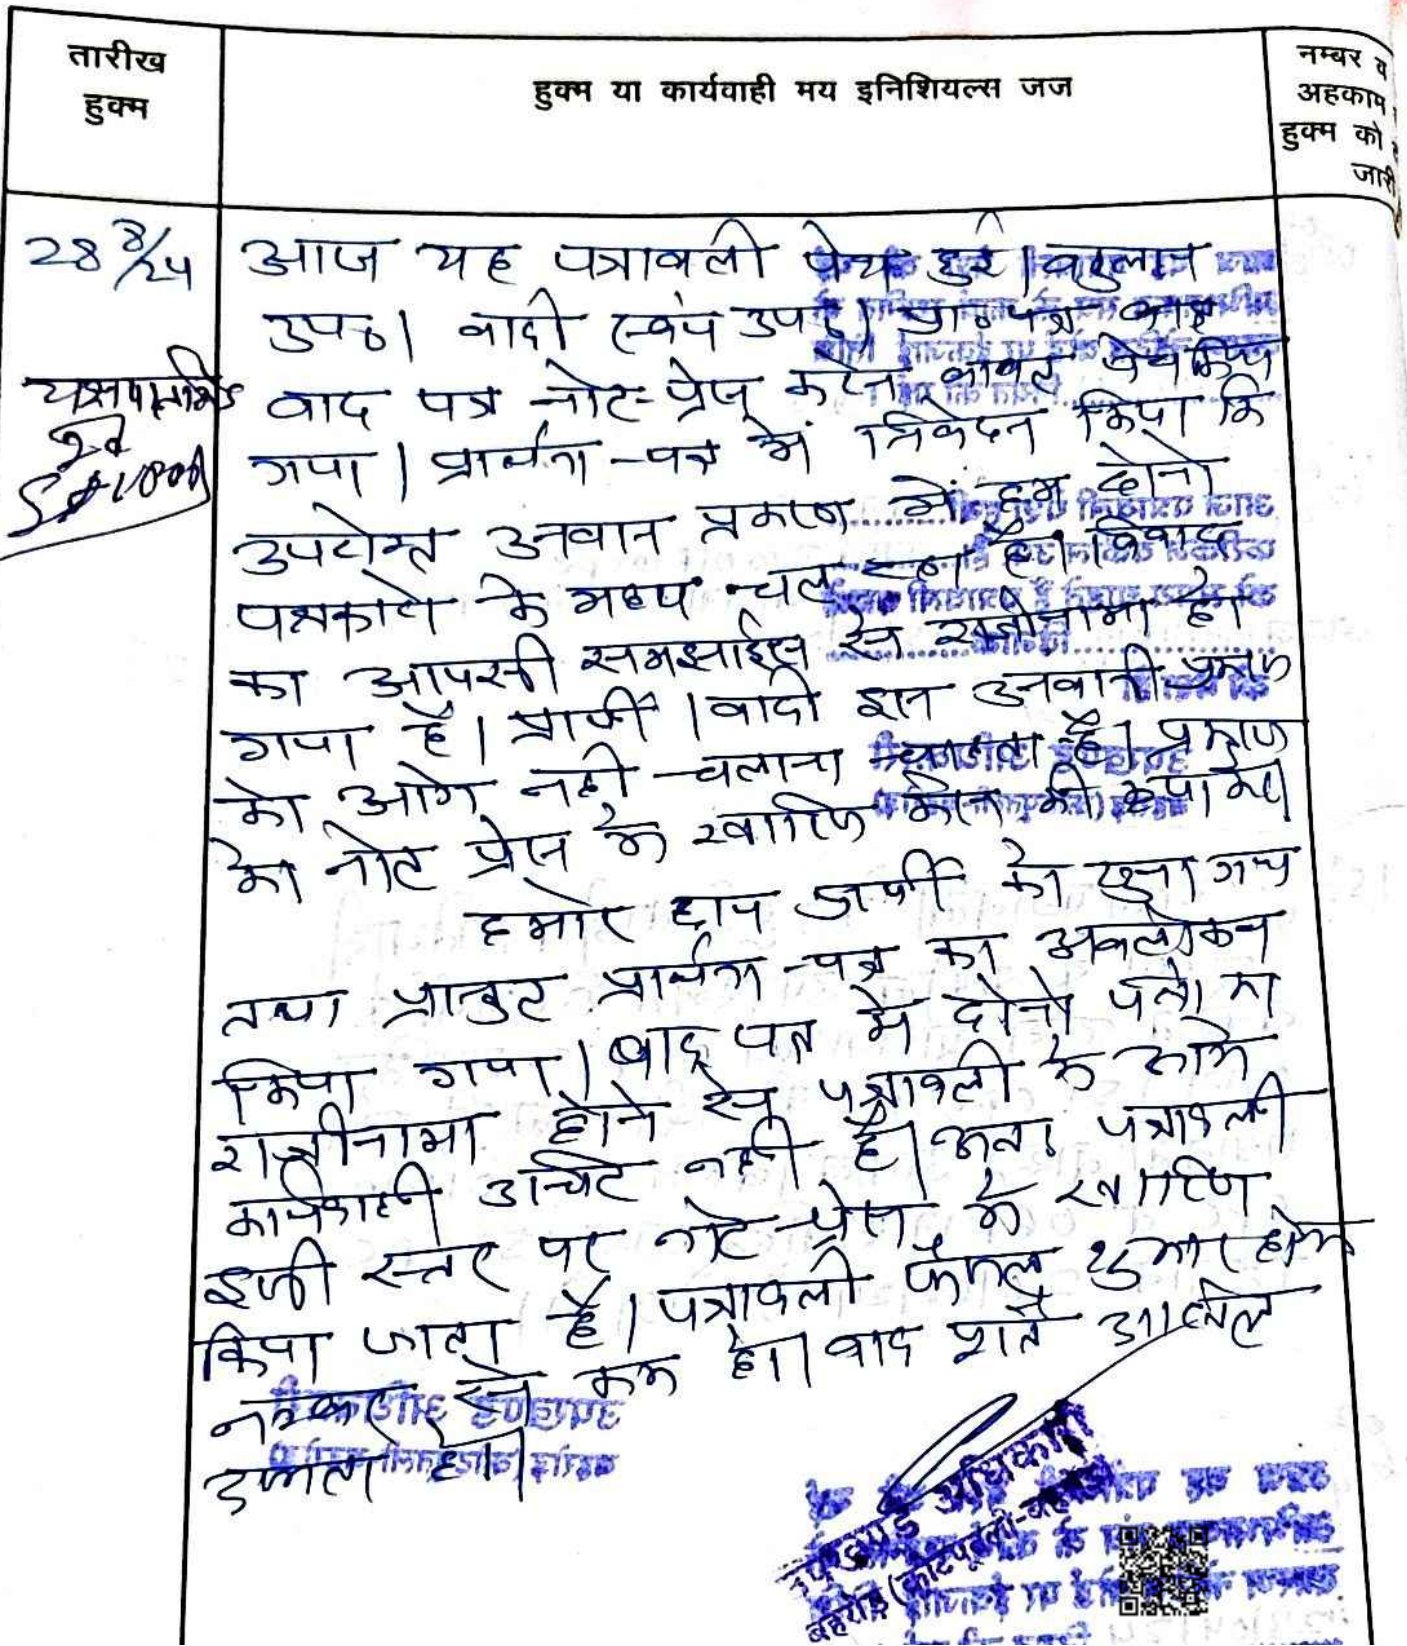 तारीख
हुक्म
हुक्म या कार्यवाही मय इनिशियल्स जज
नम्बर व
अहकाम
हुक्म को
जारी
28 8/24
आज यह पत्रावली पेश हुई। वकुलान
उप०। वादी स्वयं उप०। प्रा०पत्र
वाद पत्र नोट-प्रेस करने बाबत पेश किया
गया। प्रार्थना-पत्र में निवेदन किया कि
उपरोक्त उनवान प्रकरण में हम दोनो
पक्षकारो के मध्य चल रहा है। विवाद
का आपसी समझाईश से राजीनामा हो
गया है। प्रार्थी। वादी इस उनवानी प्रकरण
को आगे नही चलाना चाहता है। प्रकरण
को नोट प्रेस में खारिज करने की कृपा करे।
हमारे द्वारा प्रार्थी को सुना गया
तथा प्रस्तुत प्रार्थना-पत्र का अवलोकन
किया गया। वाद पत्र में दोनो पक्षो का
राजीनामा होने से पत्रावली में आगे
कार्यवाही उचित नही है। अतः पत्रावली
इसी स्तर पर नोट-प्रेस में खारिज
किया जाता है। पत्रावली फैसल शुमार होकर
नम्बर से कम हो। वाद शर्त
हो।
उपखण्ड अधिकारी
बहरोड़ (कोटपूतली-बहरोड़)